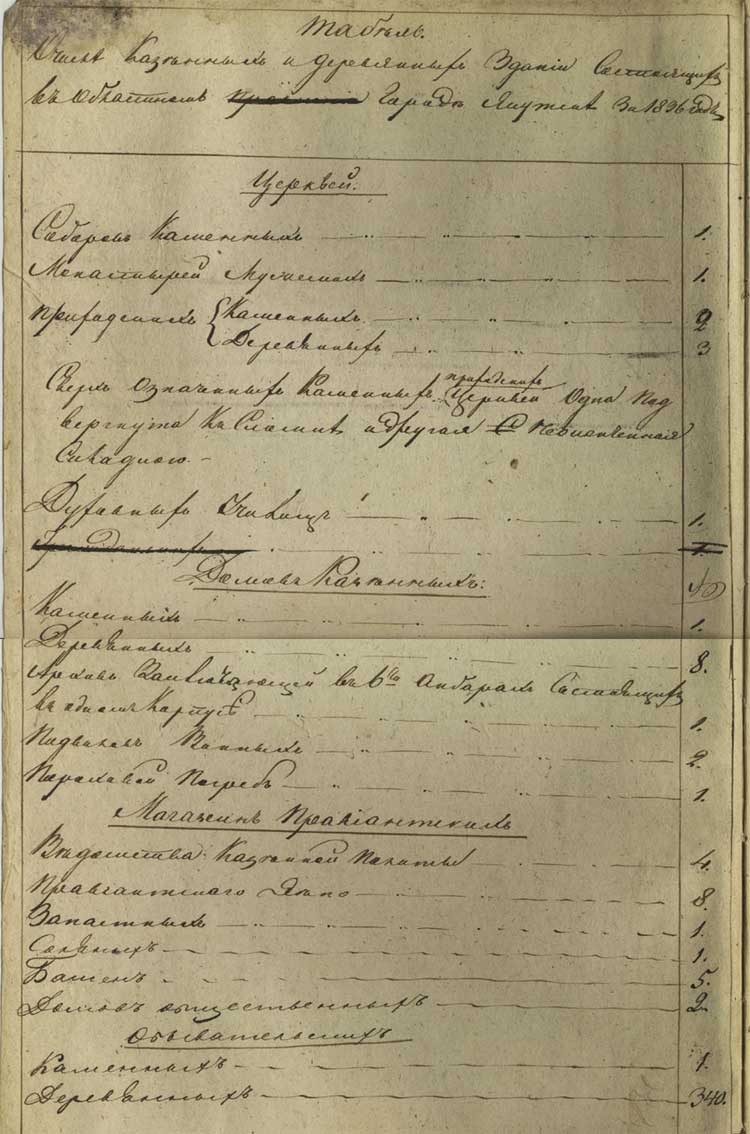 Табель.
Числа Казенныхъ и деревянныхъ зданіи Состоящихъ
въ Областномъ Городе Якутске За 1836 годъ
Церквей.
Соборовъ Каменныхъ 1.
Монастырей Мужескихъ 1.
Приходскихъ Каменныхъ 2
Деревянныхъ 3
Сверхъ означенныхъ Каменныхъ приходскихъ Церквей Одна под
вергнута къ сломке и другая
Духовныхъ Училищъ 1.
1.
Домовъ Казенныхъ:
Каменныхъ 1.
Деревянныхъ 8.
Архивъ Заключающей въ 6ти Анбарахъ Состоящихъ
въ одномъ Корпусе 1.
Подваловъ Винныхъ 2.
Пороховой Погребъ 1.
Магазинъ Провіантскихъ
Ведомства Казенной Палаты 4.
Провіантского Депо 8.
Запастныхъ 1.
Соляныхъ 1.
Башенъ 5.
Домовъ общественныхъ 2.
Обывательскихъ
Каменныхъ 1.
Деревянныхъ 340.